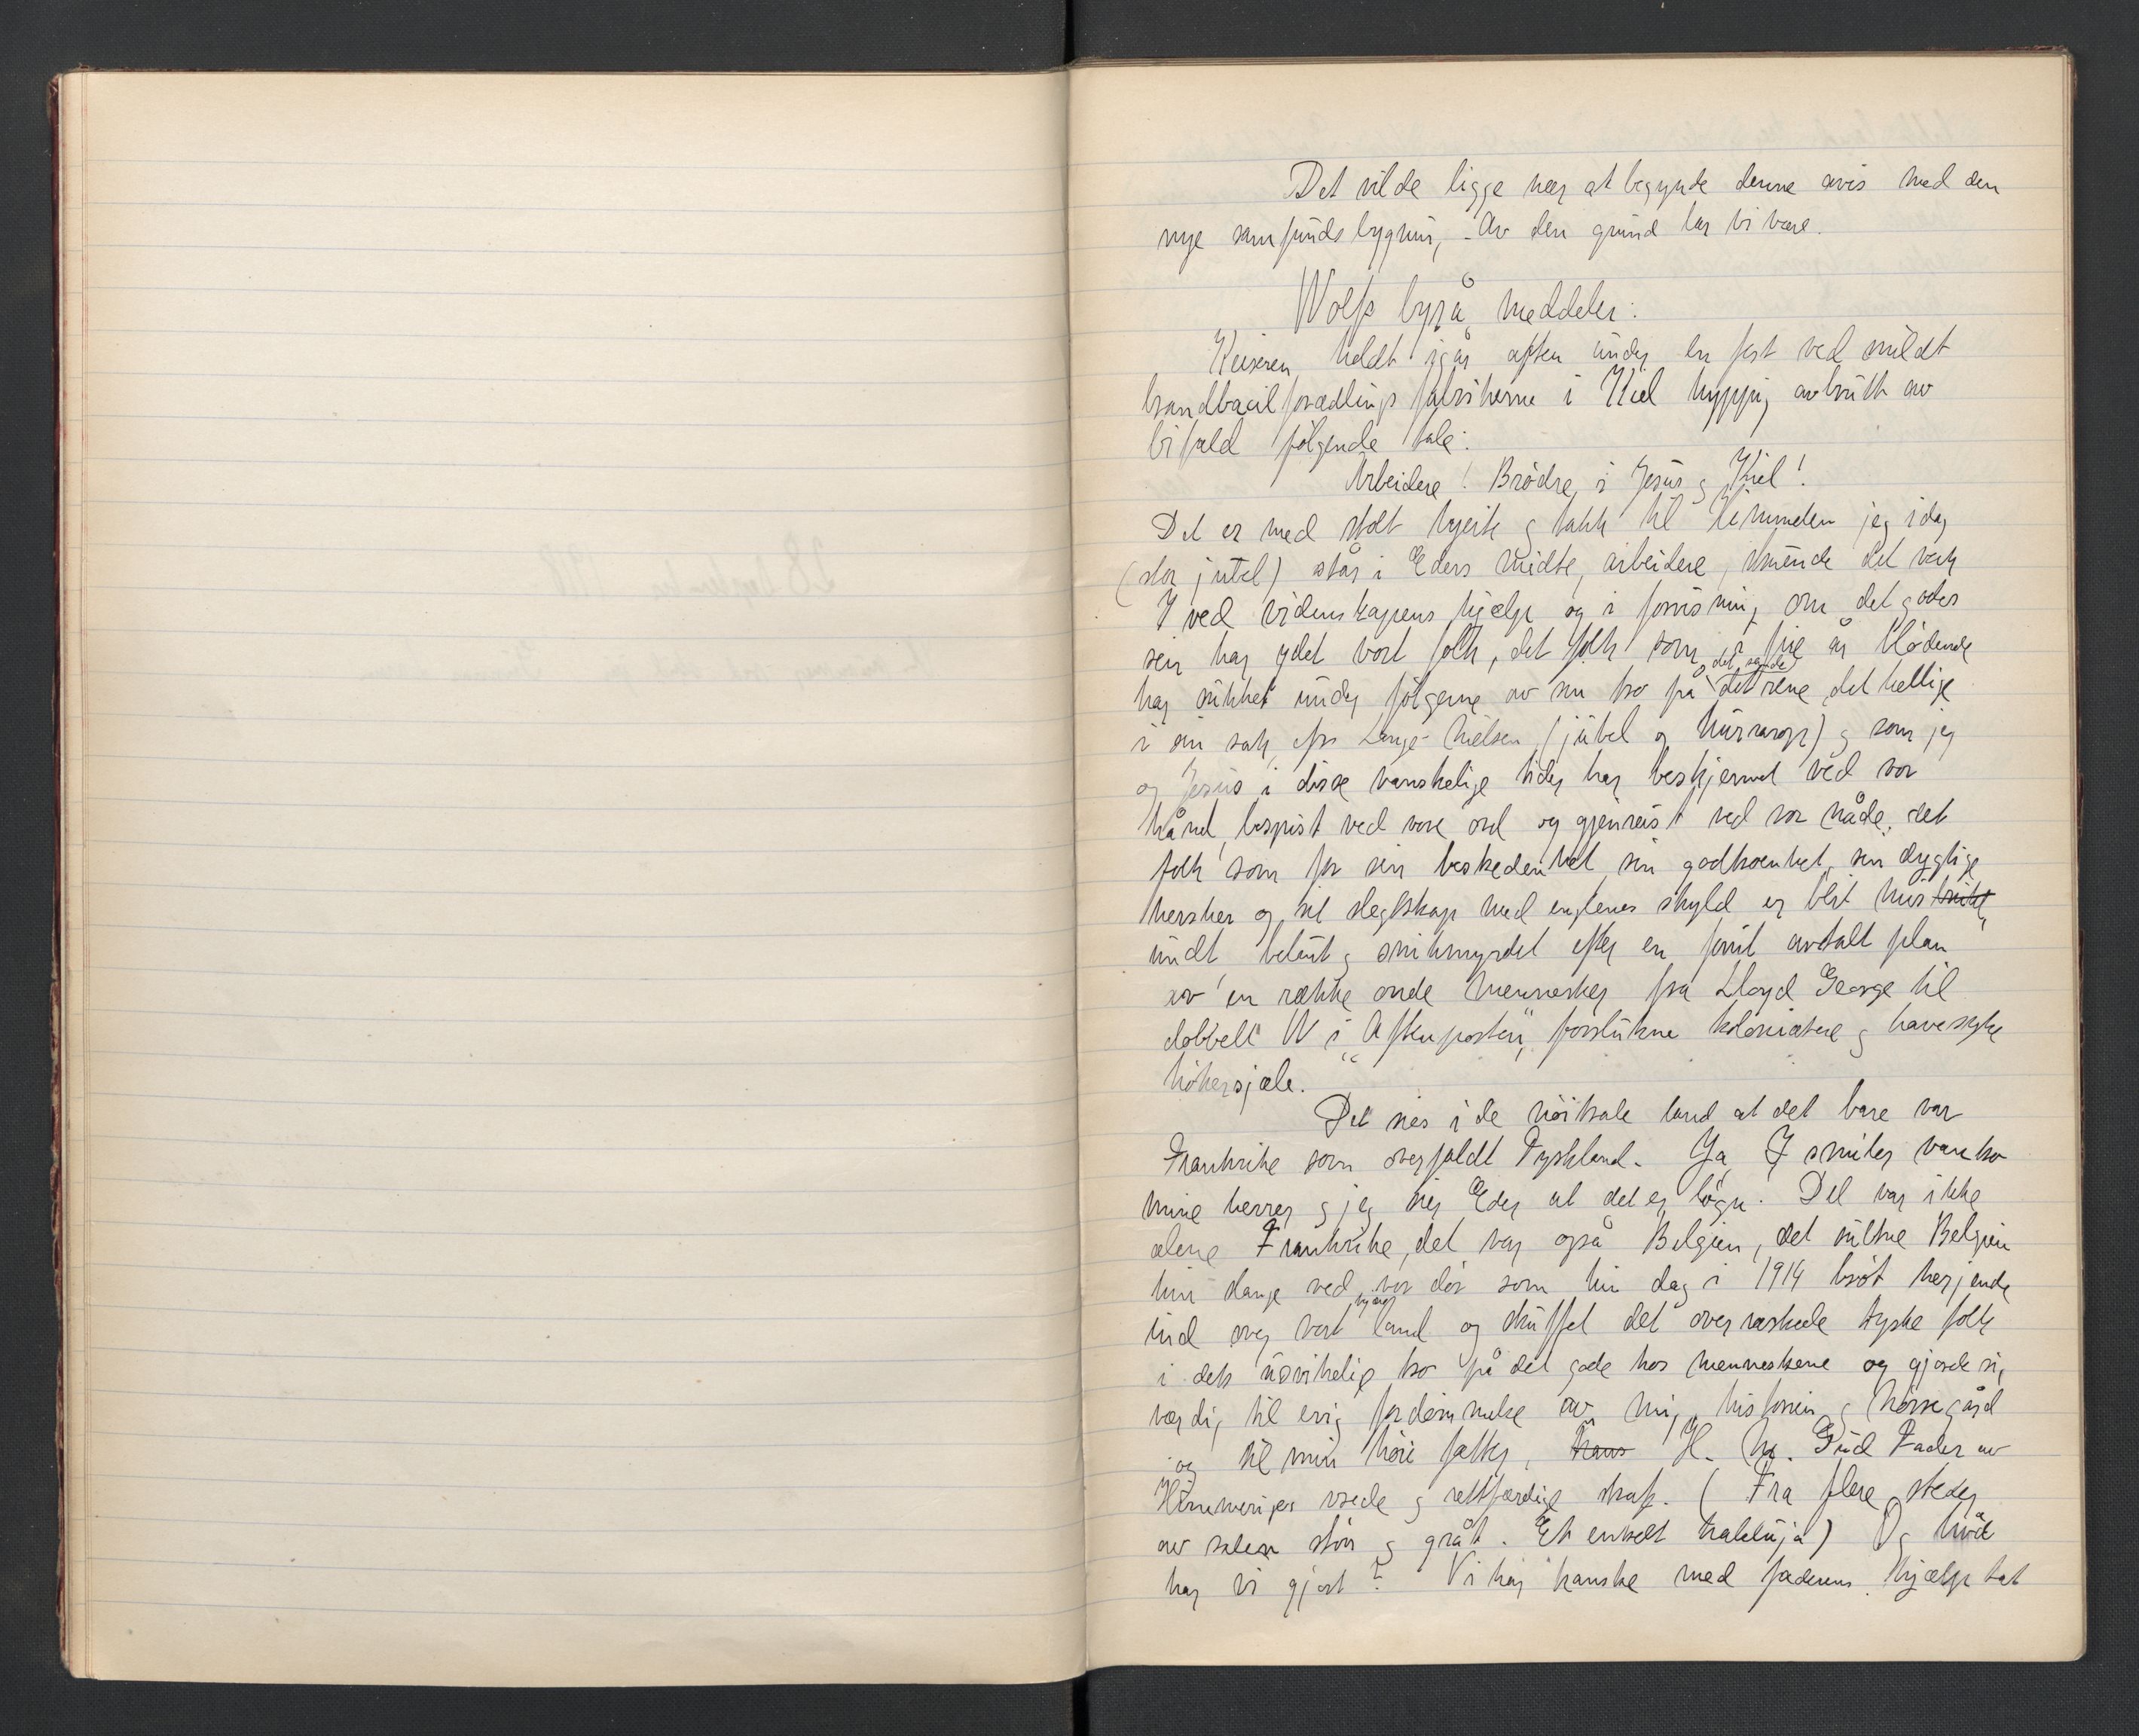 Det vilde ligge nær at begynde denne avis med den
nye samfundsbygnin, - Av den grund lar vi være.
Wolfs byrå meddeler:
Keiseren holdt igår aften under en fest ved miltbrandbacilforædlings
fabrikerne i Kiel hyppig avbrutt av
bifald følgende tale:
Arbeidere! Brødre i Jesus og Kiel!
Det er med stolt hjerte og takk til Himmelen jeg idag
(stor jubel) står i Eders midte, arbeidere, skuende det verk
I ved videnskapens hjælp og i forvisning om det godes
seir har ydet vort folk, det folk som i fire år blødende
har sukket under følgerne av sin tro på det sande det rene, det hellige
i sin sak, efr Lange-Nielsen, (jubel og hurrarop) og som jeg
og Jesus i disse vanskelige tider har beskjermet ved vor
hånd, bespist ved vore ord og gjenreist ved vor nåde, det
folk som for sin beskedenhet, sin godtroenhet, sin dygtige
hersker og sit slegtskap med englenes skyld er blit misundt
beløiet og snikmyrdet efter en forut avtalt plan
av en række onde mennesker fra Lloyd George til
dobbelt W i "Aftenposten", forslukne koloniætere og havesyke
høkersjæle.
Det sies i de nøitrale land at det bare var
Frankrike som overfaldt Tyskland. Ja, I smiler vantro
mine herrer og jeg sier Eder at det er løgn. Det var ikke
alene Frankrike, det var også Belgien, det sultne Belgien
hin slange ved vor dør som hin dag i 1914 brøt herjende
ind over vort land og skuffet det overraskede tyske folk
i dets usvikelige tro på det gode hos menneskene og gjorde sig
værdig til evig fordømmelse av mig, historien og Nørregård
og til min høie fatter, hans H. M. Gud Fader av
Himmeriges vrede og rettfærdige straf. (Fra flere steder
av salen støn og gråt. Et enkelt halleluja) Og hvad
har vi gjort? Vi har kanske med faderens hjælp tat